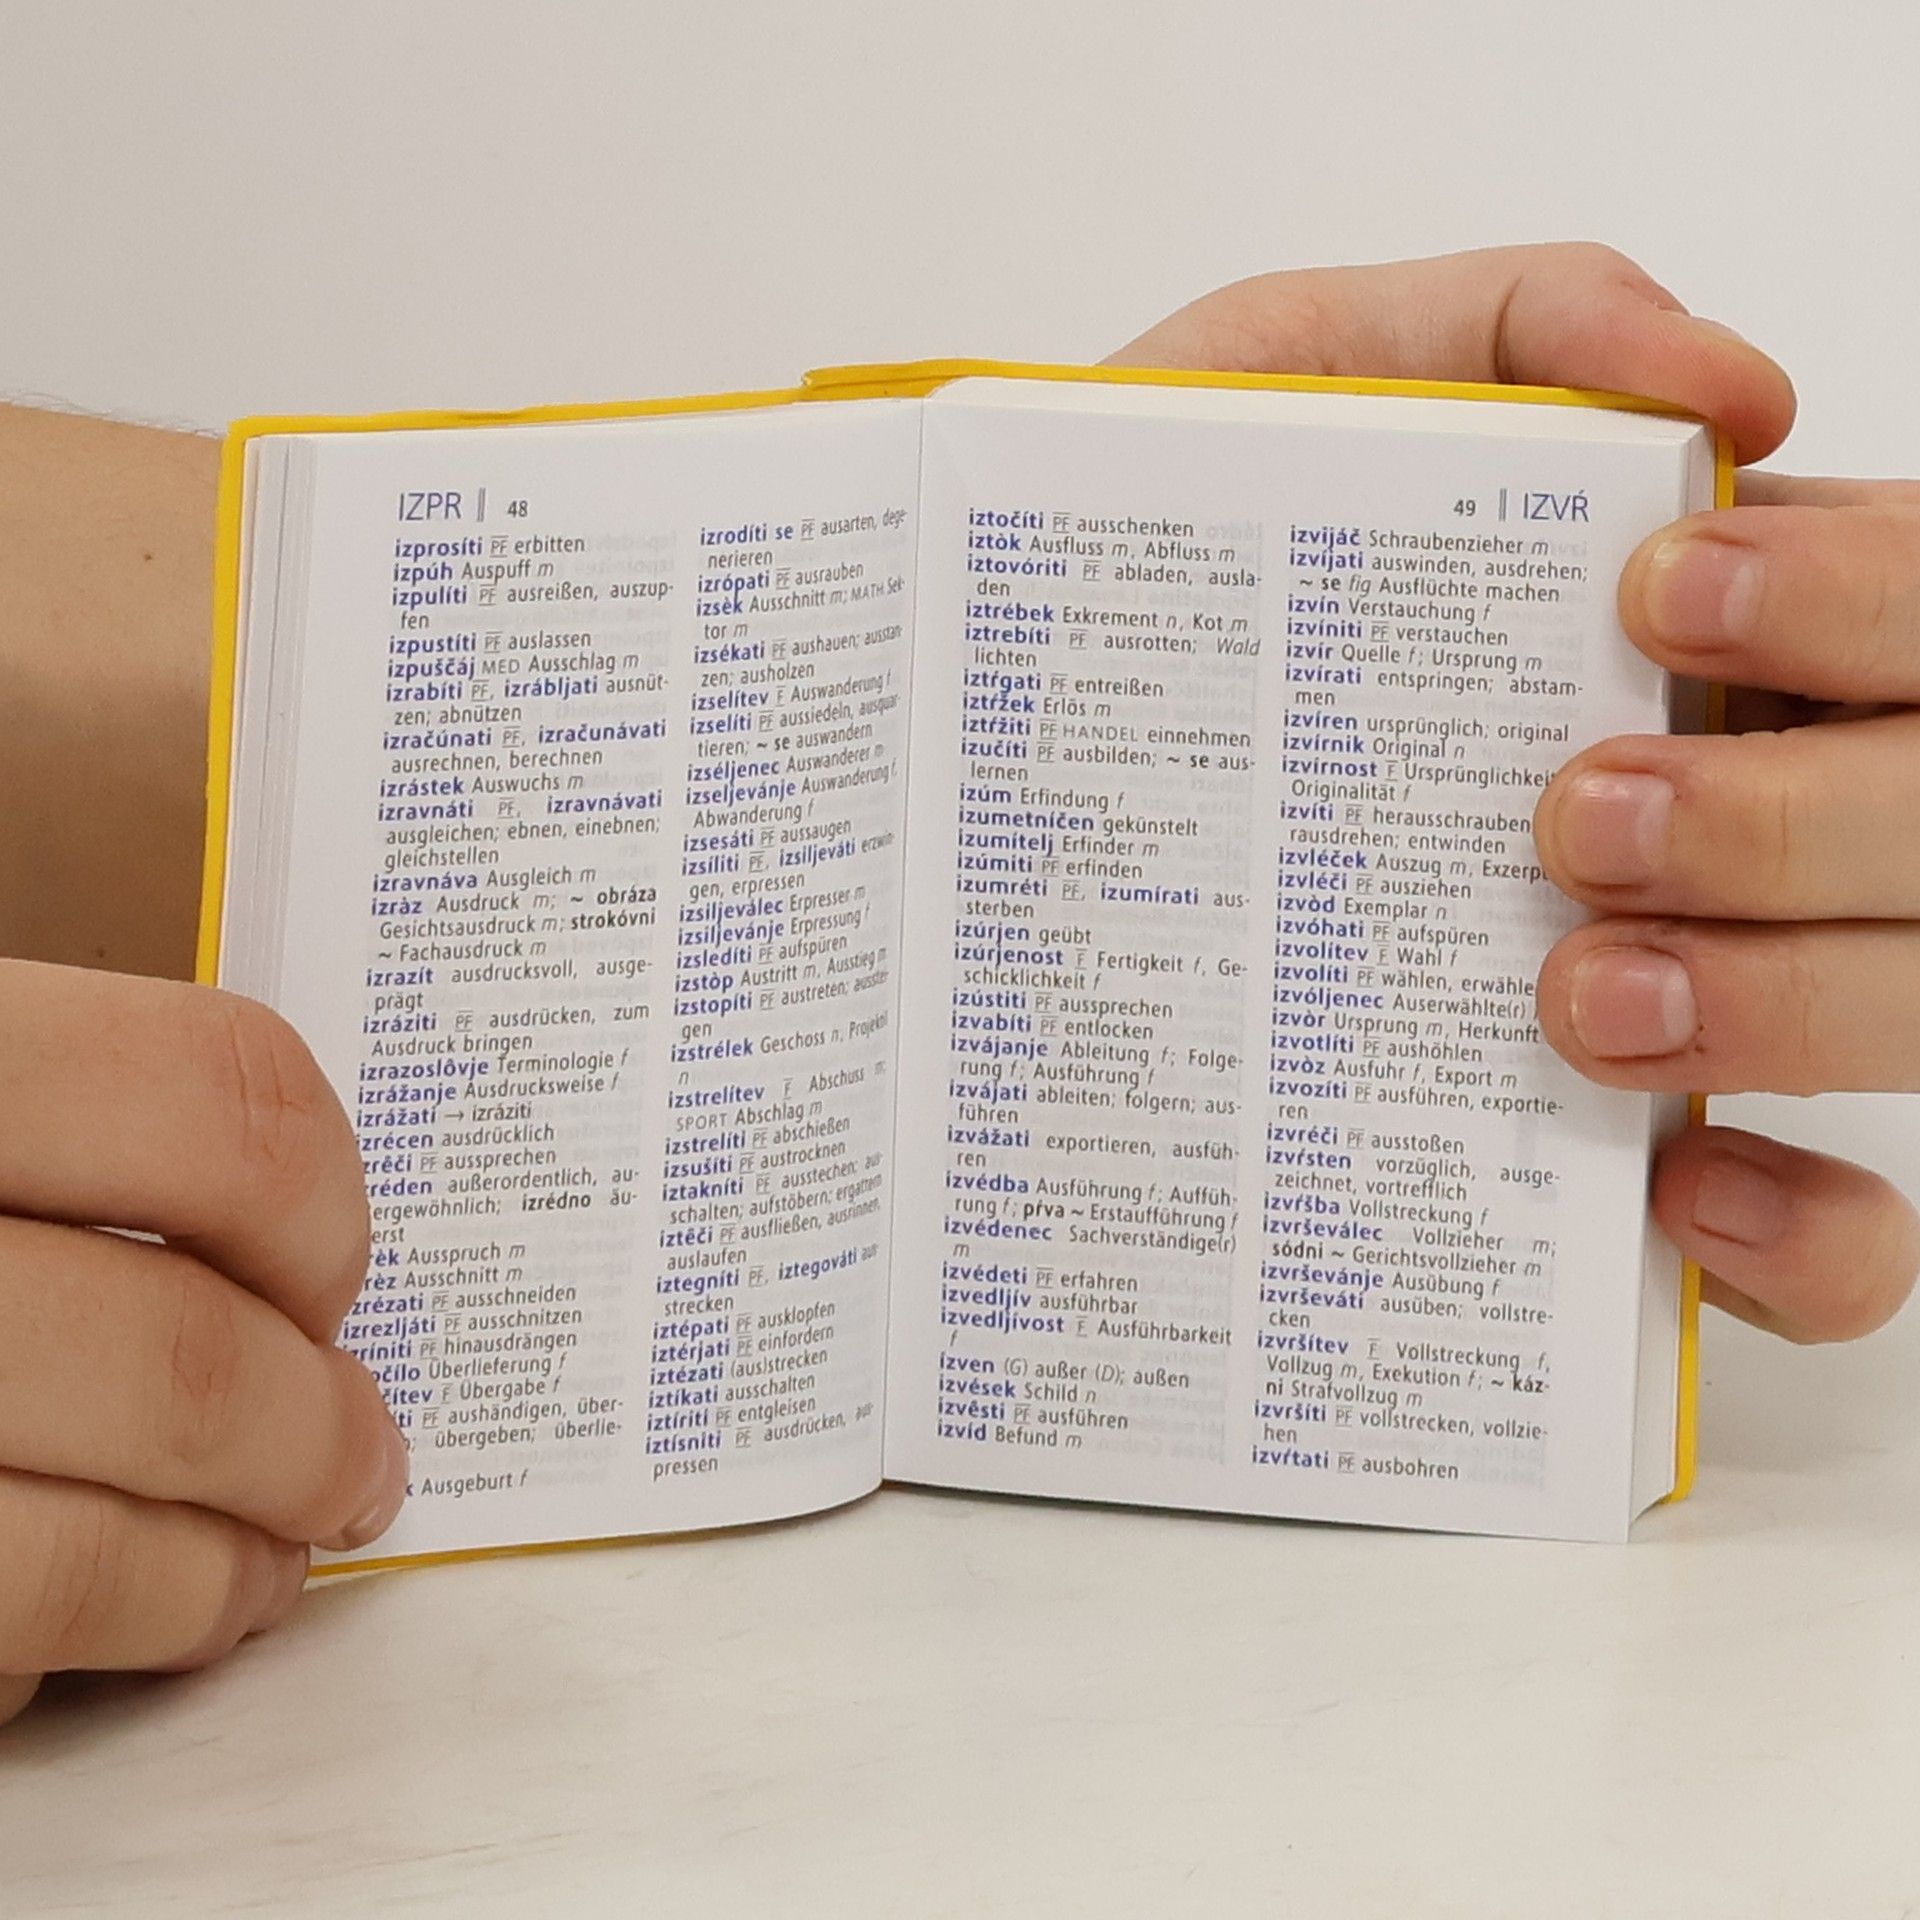 IZPR 48
izprosíti PF erbitten
izpúh Auspuff m
izpulíti PF ausreißen, auszup-
fen
izpustíti PF auslassen
izpuščáj MED Ausschlag m
izrabíti PF, izrábljati ausnüt-
zen; abnützen
izračúnati PF, izračunávati
ausrechnen, berechnen
izrástek Auswuchs m
izravnáti PF, izravnávati
ausgleichen; ebnen, einebnen;
gleichstellen
izravnáva Ausgleich m
izràz Ausdruck m; ~ obráza
Gesichtsausdruck m; strokóvni
~ Fachausdruck m
izrazít ausdrucksvoll, ausge-
prägt
izráziti PF ausdrücken, zum
Ausdruck bringen
izrazoslôvje Terminologie f
izrážanje Ausdrucksweise f
izrážati → izráziti
izrécen ausdrücklich
zrêči PF aussprechen
réden außerordentlich, au-
ergewöhnlich; izrédno äu-
erst
rèk Ausspruch m
rèz Ausschnitt m
zrézati PF ausschneiden
izrezljáti PF ausschnitzen
zríniti PF hinausdrängen
očílo Überlieferung f
čítev F Übergabe f
íti PF aushändigen, über-
übergeben; überlie-
k Ausgeburt f
izrodíti se PF ausarten, dege-
nerieren
izrópati PF ausrauben
izsèk Ausschnitt m; MATH Sek-
tor m
izsékati PF aushauen; ausstan-
zen; ausholzen
izselítev F Auswanderung f
izselíti PF aussiedeln, ausquar-
tieren; ~ se auswandern
izséljenec Auswanderer m
izseljevánje Auswanderung f,
Abwanderung f
izsesáti PF aussaugen
izsíliti PF, izsiljeváti erzwin-
gen, erpressen
izsiljeválec Erpresser m
izsiljevánje Erpressung f
izsledíti PF aufspüren
izstòp Austritt m, Ausstieg m
izstopíti PF austreten; ausstei-
gen
izstrélek Geschoss n, Projektil
n
izstrelítev F Abschuss m;
SPORT Abschlag m
izstrelíti PF abschießen
izsušíti PF austrocknen
iztakníti PF ausstechen; aus-
schalten; aufstöbern; ergattern
iztêči PF ausfließen, ausrinnen,
auslaufen
iztegníti PF, iztegováti aus-
strecken
iztépati PF ausklopfen
iztérjati PF einfordern
iztézati (aus)strecken
iztíkati ausschalten
iztíriti PF entgleisen
iztísniti PF ausdrücken, aus-
pressen
49 IZVŔ
iztočíti PF ausschenken
iztòk Ausfluss m, Abfluss m
iztovóriti PF abladen, ausla-
den
iztrébek Exkrement n, Kot m
iztrebíti PF ausrotten; Wald
lichten
iztŕgati PF entreißen
iztŕžek Erlös m
iztŕžiti PF HANDEL einnehmen
izučíti PF ausbilden; ~ se aus-
lernen
izúm Erfindung f
izumetníčen gekünstelt
izumítelj Erfinder m
izúmiti PF erfinden
izumréti PF, izumírati aus-
sterben
izúrjen geübt
izúrjenost F Fertigkeit f, Ge-
schicklichkeit f
izústiti PF aussprechen
izvabíti PF entlocken
izvájanje Ableitung f; Folge-
rung f; Ausführung f
izvájati ableiten; folgern; aus-
führen
izvážati exportieren, ausfüh-
ren
izvédba Ausführung f; Auffüh-
rung f; pŕva ~ Erstaufführung f
izvédenec Sachverständige(r)
m
izvédeti PF erfahren
izvedljív ausführbar
izvedljívost F Ausführbarkeit
f
ízven (G) außer (D); außen
izvések Schild n
izvêsti PF ausführen
izvíd Befund m
izvijáč Schraubenzieher m
izvíjati auswinden, ausdrehen;
~ se fig Ausflüchte machen
izvín Verstauchung f
izvíniti PF verstauchen
izvír Quelle f; Ursprung m
izvírati entspringen; abstam-
men
izvíren ursprünglich; original
izvírnik Original n
izvírnost F Ursprünglichkeit
Originalität f
izvíti PF herausschrauben
rausdrehen; entwinden
izvléček Auszug m, Exzerpt
izvléči PF ausziehen
izvòd Exemplar n
izvóhati PF aufspüren
izvolítev F Wahl f
izvolíti PF wählen, erwähle
izvóljenec Auserwählte(r)
izvòr Ursprung m, Herkunft
izvotlíti PF aushöhlen
izvòz Ausfuhr f, Export m
izvozíti PF ausführen, exportie-
ren
izvréči PF ausstoßen
izvŕsten vorzüglich, ausge-
zeichnet, vortrefflich
izvŕšba Vollstreckung f
izvrševálec Vollzieher m;
sódni ~ Gerichtsvollzieher m
izvrševánje Ausübung f
izvrševáti ausüben; vollstre-
cken
izvršítev F Vollstreckung f,
Vollzug m, Exekution f; ~ káz-
ni Strafvollzug m
izvršíti PF vollstrecken, vollzie-
hen
izvŕtati PF ausbohren